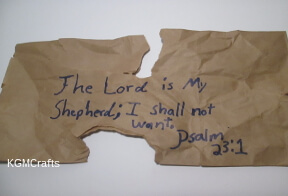 The Lord is My
Shepherd; I shall not
want.
Psalm
23:1
KGMCrafts